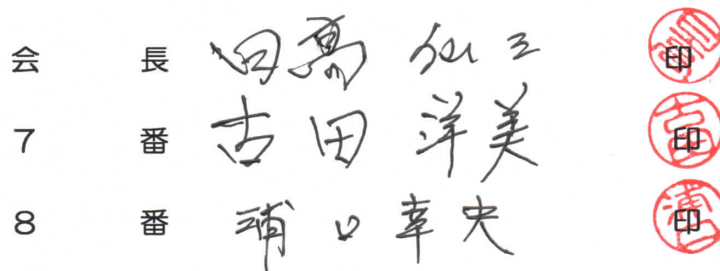 会長 日高仙三 印
7番 古田洋美 印
8番 浦口幸央 印